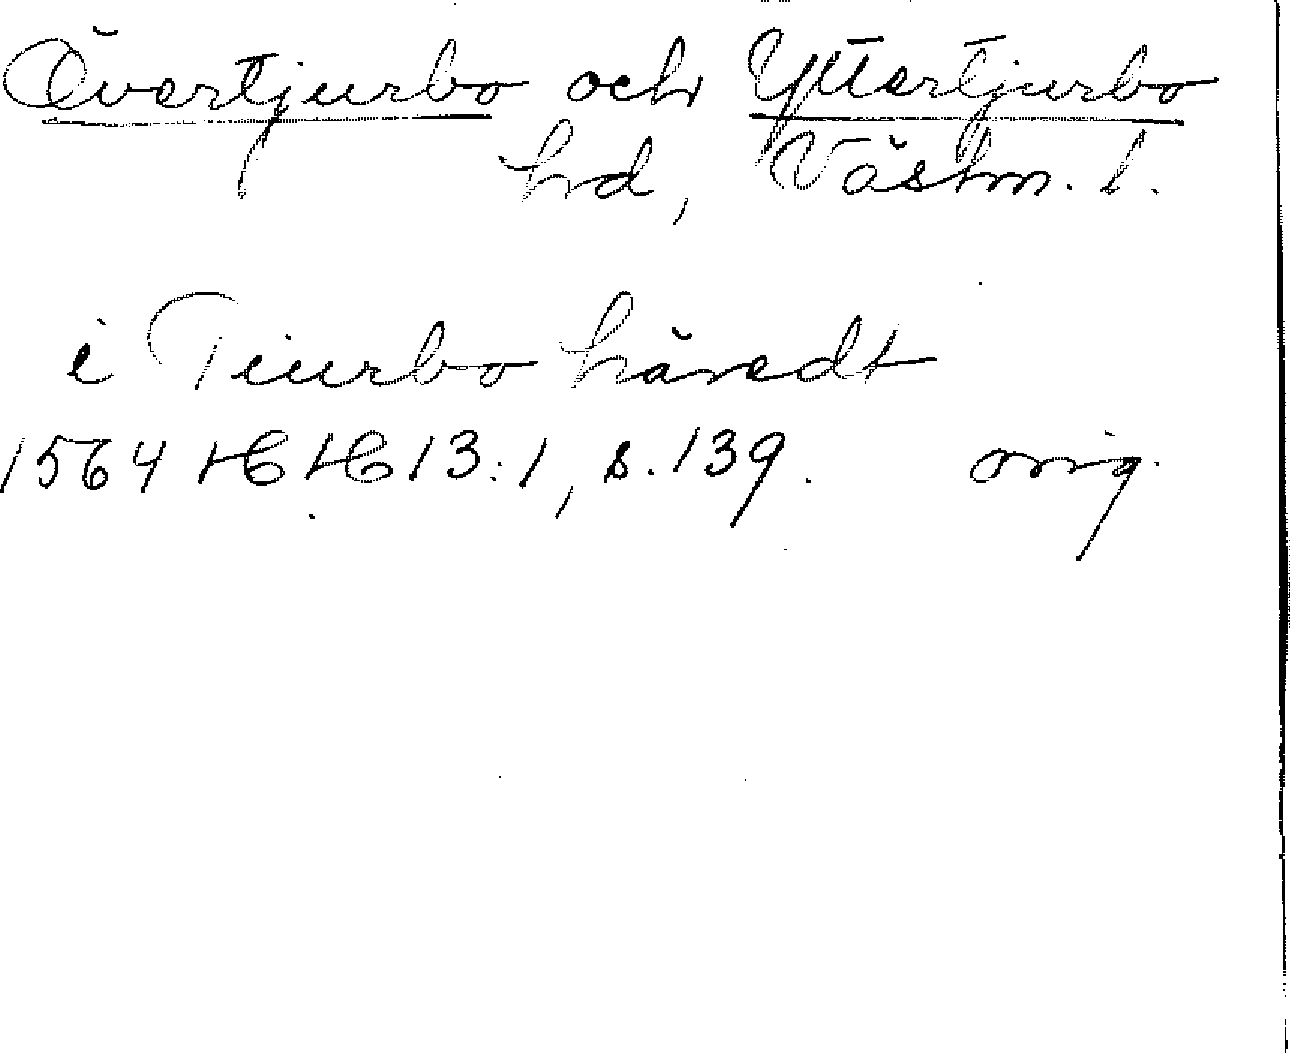 Övertjurbo och Yttertjurbo
hd, Västm. l.
i Tiurbo häredt
1564 HH 13:1, s. 139. orig.